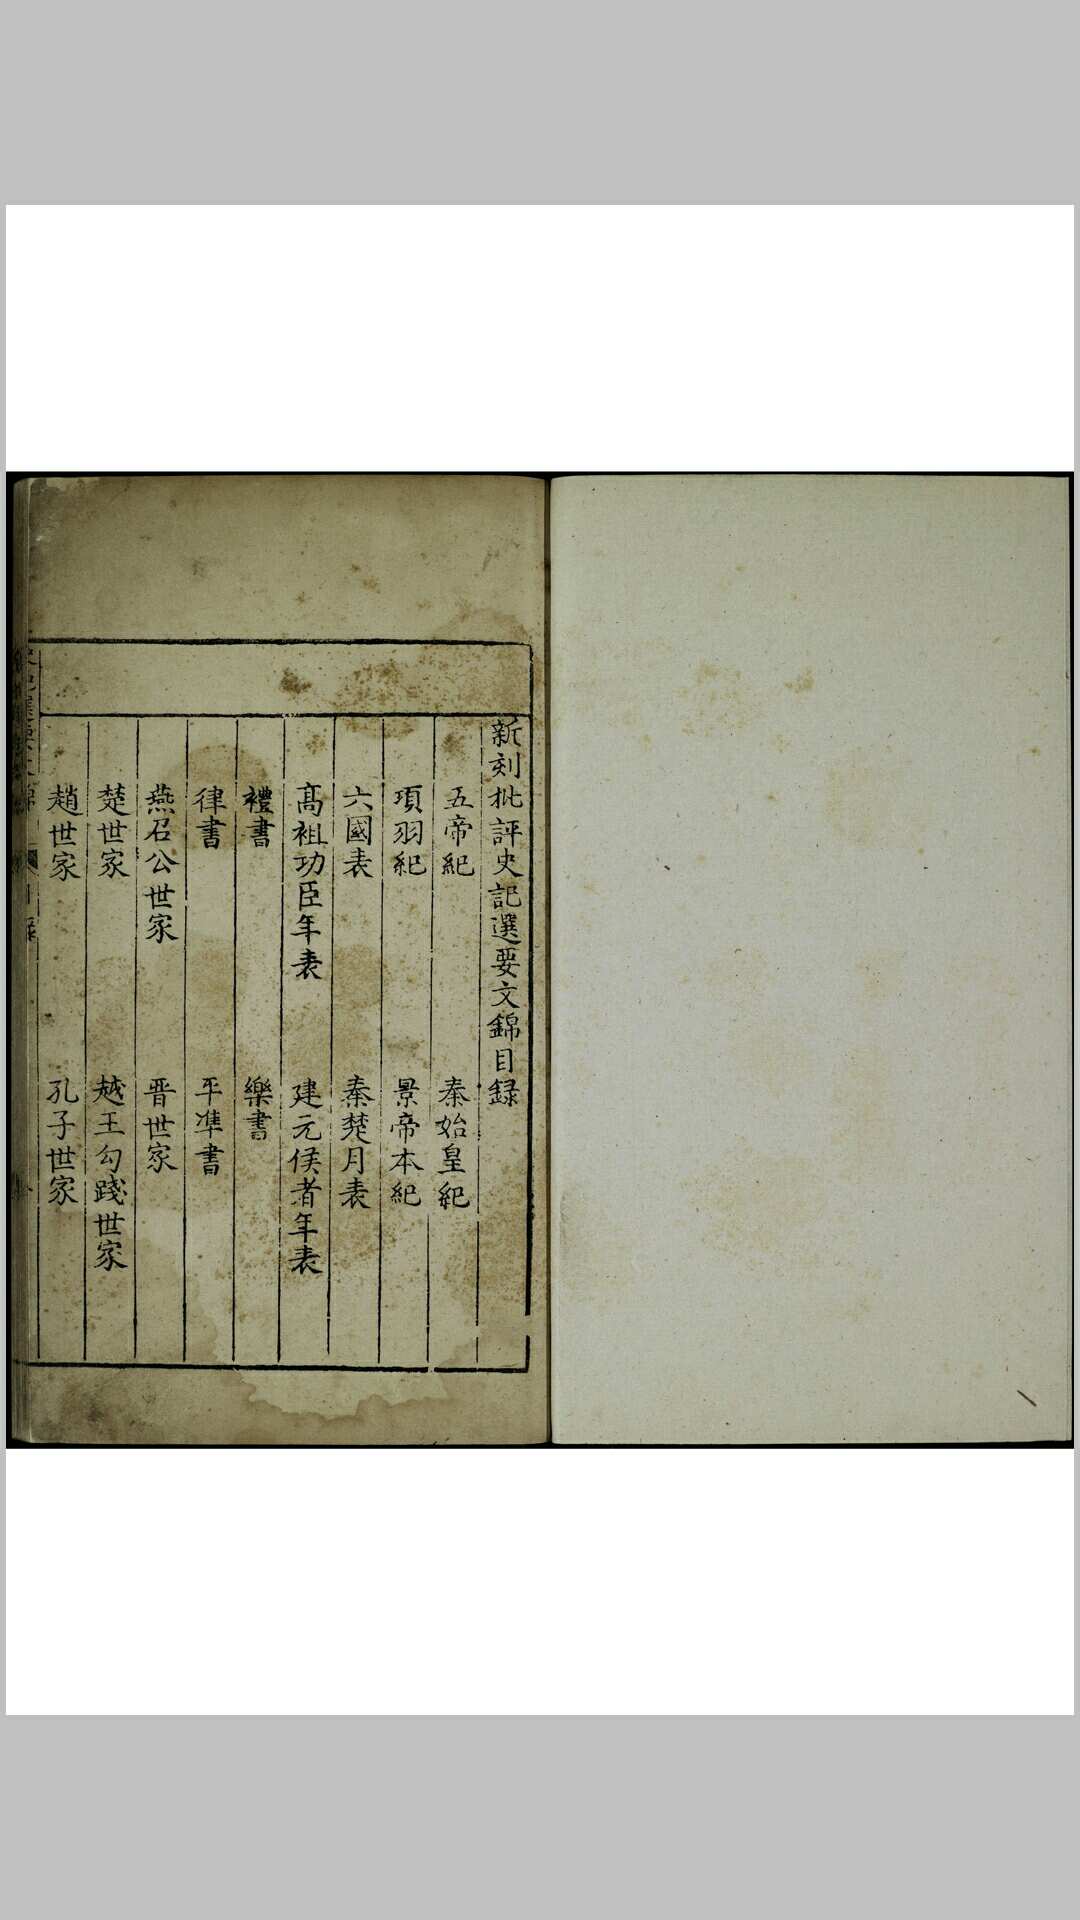 新刻批評史記選要文錦目録
五帝紀　秦始皇紀
項羽紀　景帝本紀
六國表　秦楚月表
高祖功臣年表　建元侯者年表
禮書　樂書
律書　平準書
燕召公世家　晉世家
楚世家　越王勾踐世家
趙世家　孔子世家